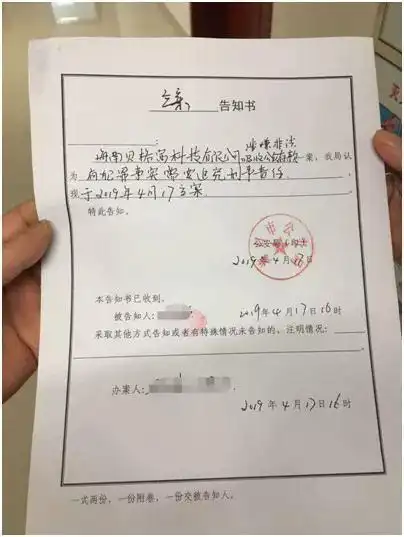 立案 告知书
:
涉嫌非法
海南贝格富科技有限公司吸收公众存款一案，我局认
为有犯罪事实需要追究刑事责任，
现于2019年4月17立案。
特此告知。
2019年4月17日
本告知书已收到。
被告知人：
2019年4月17日16时
采取其他方式告知或者有特殊情况未告知的，注明情况：
办案人：
2019年4月17日16时
一式两份，一份附卷，一份交被告知人。